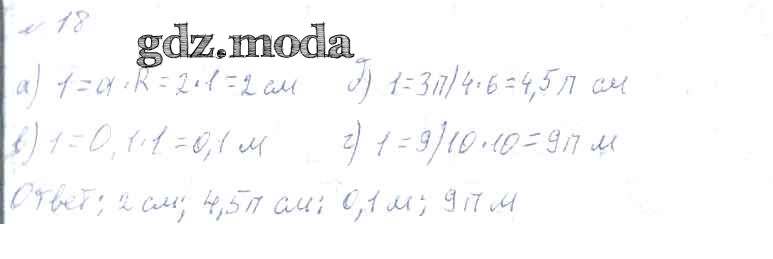 № 18
gdz.moda
а) l=α·R=2·1=2 см б) l=3π/4·6=4,5π см
в) l=0,1·1=0,1 м г) l=9/10·10=9π м
Ответ: 2 см; 4,5π см; 0,1 м; 9π м